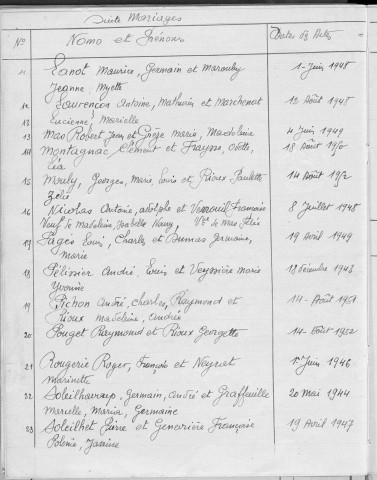 Suite Mariages
No Noms et Prénoms Dates des Actes
11 Lanot Maurice, Germain et Marouby 1 Juin 1948
Jeanne, Myette
12 Laurençon Antoine, Mathurin et Marchenot 12 Août 1948
Lucienne, Marielle
13 Mas Robert Jean et Grèze Marie, Madeleine 4 Juin 1949
14 Montagnac Clément et Fraysse, Odette, 18 Août 1950
Léa
15 Mouly, Georges, Marie, Louis et Rioux Paulette 14 Août 1952
Zélie
16 Nicolas Antoine, Adolphe et Verrouil Françoise 8 Juillet 1948
Veuf de Madeleine, Isabelle Vve de Félix
17 Pagès Louis, Charles et Dumas Germaine, 19 Avril 1949
Marie
18 Pélissier André, Louis et Veyssière Marie 18 Décembre 1943
Yvonne
19 Pichon André, Charles, Raymond et 14 Août 1951
Rioux Madeleine, Andrée
20 Pouget Raymond et Rioux Georgette 14 Août 1952
21 Rougerie Roger, François et Neyrat 1er Juin 1946
Marinette
22 Soleilhavoup, Germain, André et Graffeuille 20 Mai 1944
Marcelle, Maria, Germaine
23 Soleilhet Pierre et Françoise 19 Avril 1947
Polonie, Janine